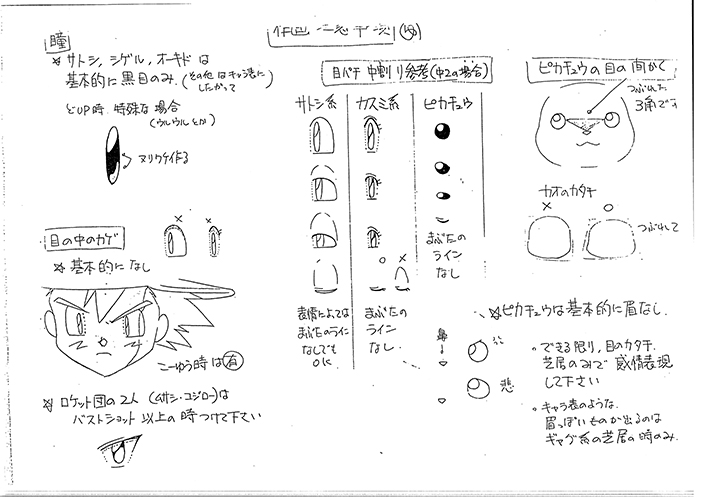 瞳
☆サトシ、シゲル、オーキドは
基本的に黒目のみ。(その他はキャラ表に
したがって
どUP時、特殊な場合
(ウルウルとか)
ヌリワケ作る
目の中のカゲ
☆基本的になし
× ×
こーゆう時は有
☆ロケット団の2人(ムサシ・コジロー)は
バストショット以上の時つけて下さい
目パチ 中割り参考(中2の場合)
サトシ系
カスミ系
ピカチュウ
表情によっては
まぶたのライン
なしでも
OK
○ ×
まぶたの
ライン
なし.
まぶたの
ライン
なし
ピカチュウの目の間かく
つぶれた
3角です
カオのカタチ
× ○
つぶれて
☆ピカチュウは基本的に眉なし.
。できる限り、目のカタチ.
芝居のみで感情表現
して下さい
悲
。キャラ表のような.
眉っぽいものが出るのは
ギャグ系の芝居の時のみ.